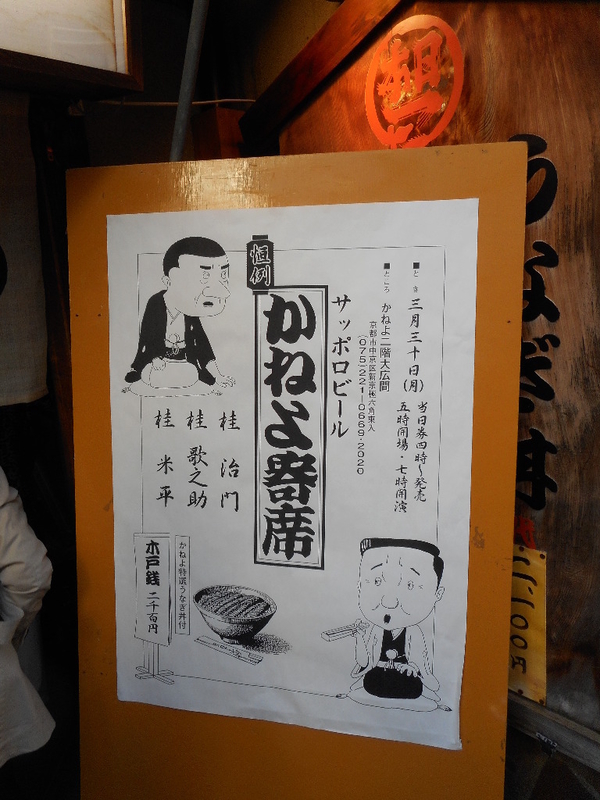 ■とき 三月三十日(月) 当日券四時～発売
五時開場・七時開演
■ところ かねよ二階大広間
京都市中京区新京極六角東入
(075)221-0669・2020
サッポロビール
恒例
かねよ寄席
桂 治門
桂 歌之助
桂 米平
かねよ特選うなぎ丼付
木戸銭 二千百円
うなぎ丼
二、一〇〇円